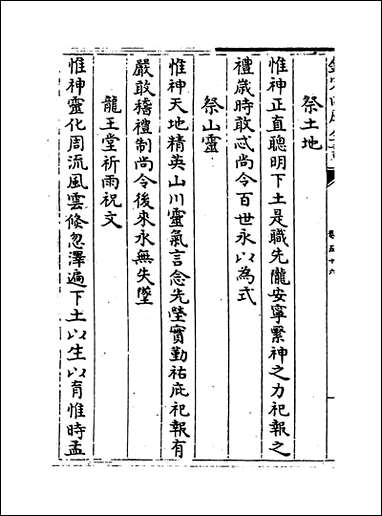 祭土地
惟神正直聰明下土是職先隴安寧繄神之力祀報之
禮歲時敢忒尚令百世永以為式
祭山靈
惟神天地精英山川靈氣言念先塋實勤祐庇祀報有
嚴敢稽禮制尚令後來永無失墜
龍王堂祈雨祝文
惟神靈化周流風雲倏忽澤遍下土以生以育惟時孟